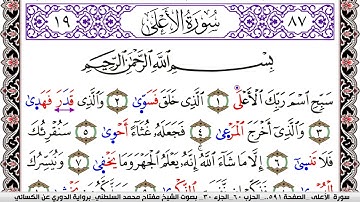 ٨٧ سُورَةُ الأَعْلَى ١٩
بِسْمِ اللَّهِ الرَّحْمَٰنِ الرَّحِيمِ
سَبِّحِ اسْمَ رَبِّكَ الْأَعْلَى ١ الَّذِي خَلَقَ فَسَوَّىٰ ٢ وَالَّذِي قَدَرَ فَهَدَىٰ
٣ وَالَّذِي أَخْرَجَ الْمَرْعَىٰ ٤ فَجَعَلَهُ غُثَاءً أَحْوَىٰ ٥ سَنُقْرِئُكَ
فَلَا تَنسَىٰ ٦ إِلَّا مَا شَاءَ اللَّهُ إِنَّهُ يَعْلَمُ الْجَهْرَ وَمَا يَخْفَىٰ ٧ وَنُيَسِّرُكَ
سورة الأعلى . الصفحة ٥٩١.. الحزب ٦٠ . الجزء ٣٠ . بصوت الشيخ مفتاح محمد السلطني. برواية الدوري عن الكسائي